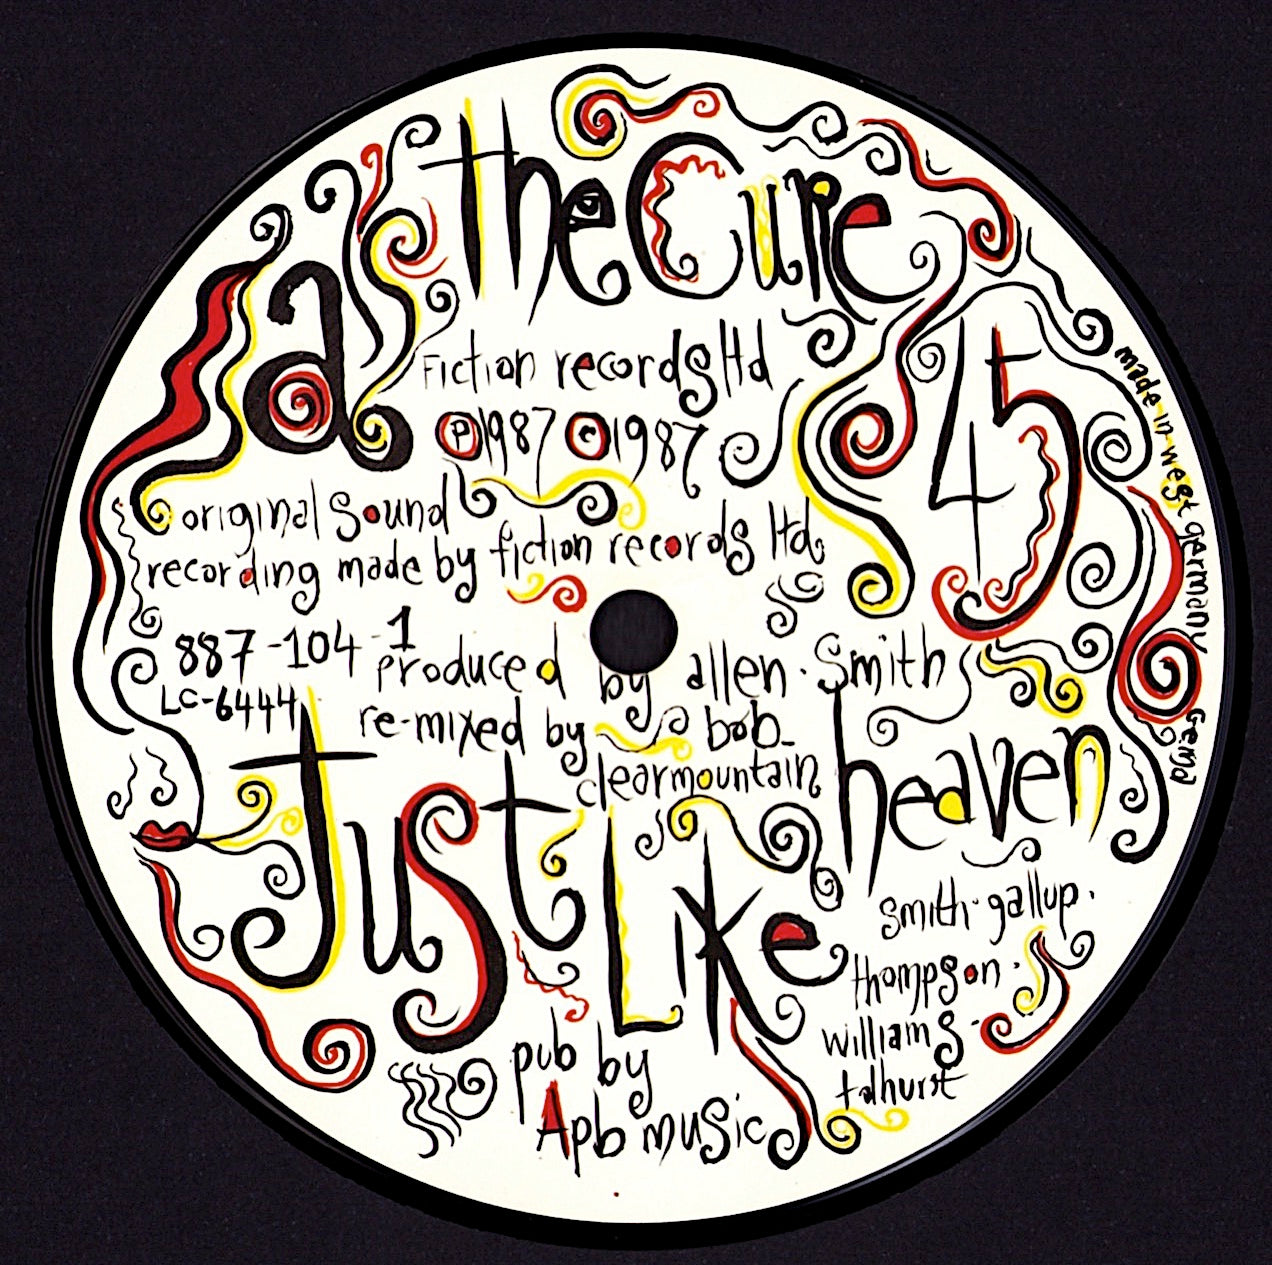 the Cure
as
fiction records ltd
℗1987 ©1987
45
made in west germany
Gema
original sound
recording made by fiction records ltd
887-104-1
LC-6444
produced by allen. Smith
re-mixed by bob
clearmountain
Just Like heaven
smith. gallup.
thompson.
williams-
tolhurst
pub by
Apb music